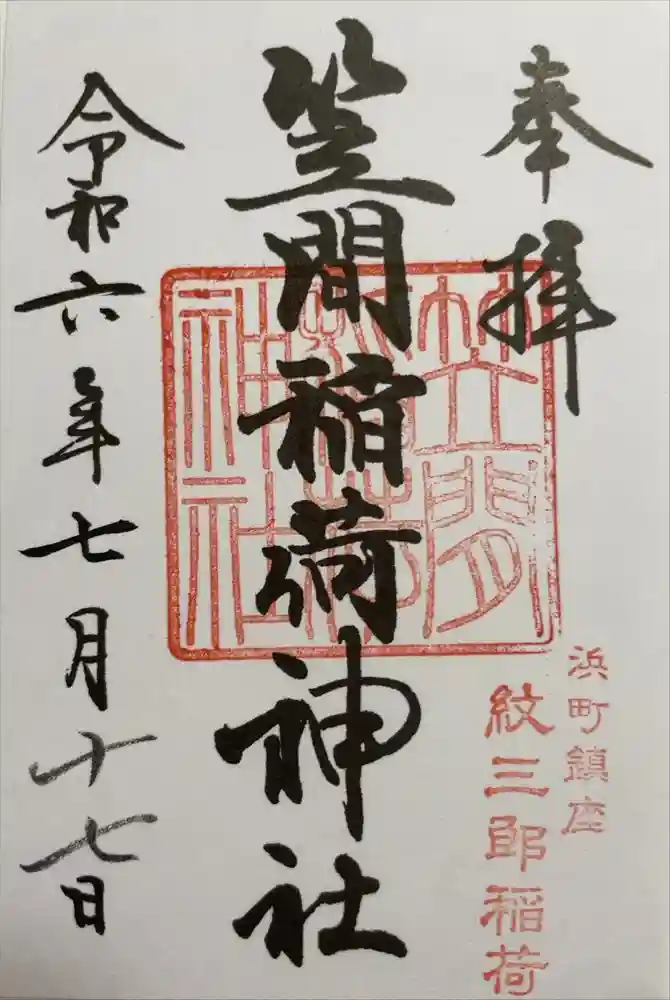 奉拝
浜町鎮座
紋三郎稲荷
笠間稲荷神社
笠間
稲荷
神社
令和六年七月十七日